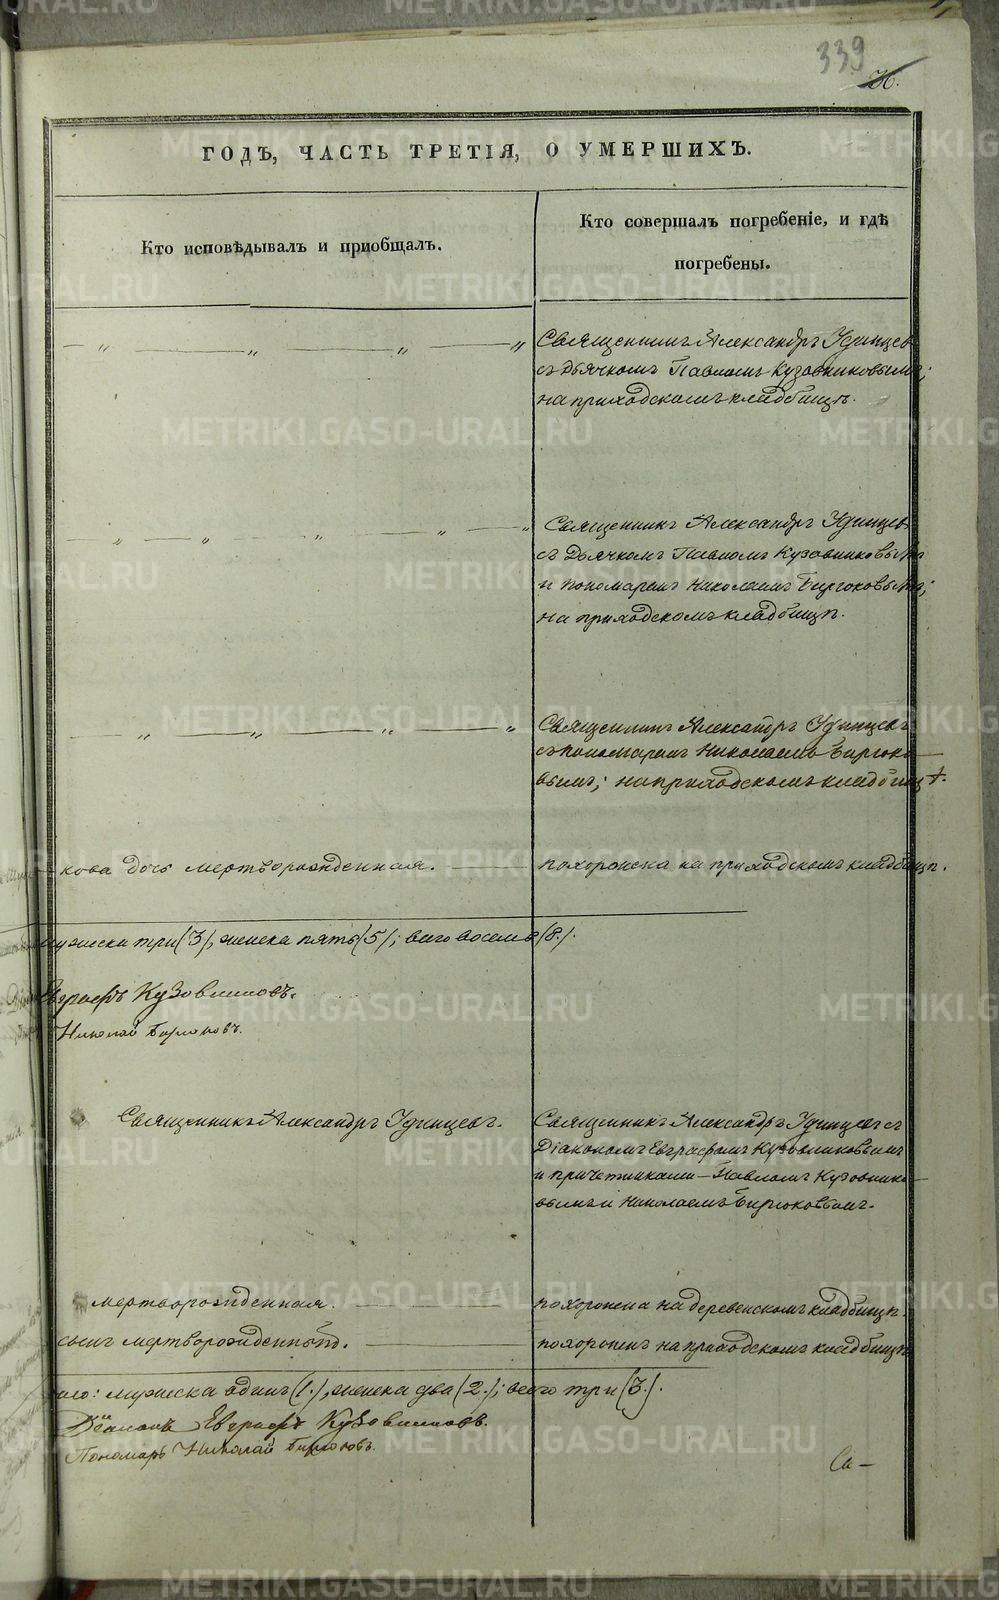 339
ГОДЪ, ЧАСТЬ ТРЕТІЯ, О УМЕРШИХЪ.
Кто исповѣдывалъ и приобщалъ.
Кто совершалъ погребеніе, и гдѣ
погребены.
Священникъ Александръ Удинцевъ
съ Дьячкомъ Павломъ Кузовниковымъ;
на приходскомъ кладбищѣ.
Священникъ Александръ Удинцевъ
съ Дьячкомъ Павломъ Кузовниковымъ
и пономаремъ Николаемъ Бирюковымъ;
на приходскомъ кладбищѣ.
Священникъ Александръ Удинцевъ
съ пономаремъ Николаемъ Бирюко-
вымъ; на приходскомъ кладбищѣ.
кова дочь мертворожденная. похоронена на приходскомъ кладбищѣ.
мужеска три (3), женска пять (5); всего восемь (8.).
Евграфъ Кузовниковъ.
Николай Бирюковъ.
Священникъ Александръ Удинцевъ.
Священникъ Александръ Удинцевъ съ
Діакономъ Евграфомъ Кузовниковымъ
и причетниками – Павломъ Кузовнико-
вымъ и Николаемъ Бирюковымъ.
мертворожденная. похоронена на деревенскомъ кладбищѣ.
сынъ мертворожденный. похороненъ на приходскомъ кладбищѣ
мужеска одинъ (1.), женска два (2.); всего три (3.).
Діаконъ Евграфъ Кузовниковъ.
Пономарь Николай Бирюковъ.
Са–
METRIKI.GASO-URAL.RU